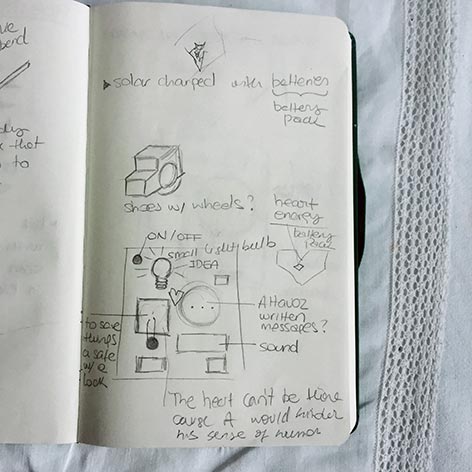 ve
berd
dy
that
to
▸ solar charged with batteries
battery
pack
shoes w/ wheels?
heart
energy
battery
pack
ON/OFF
small light bulb
IDEA
written
messages?
sound
to save
things
a safe
w/ a
lock
The heart can't be there
cause A would hinder
his sense of humor